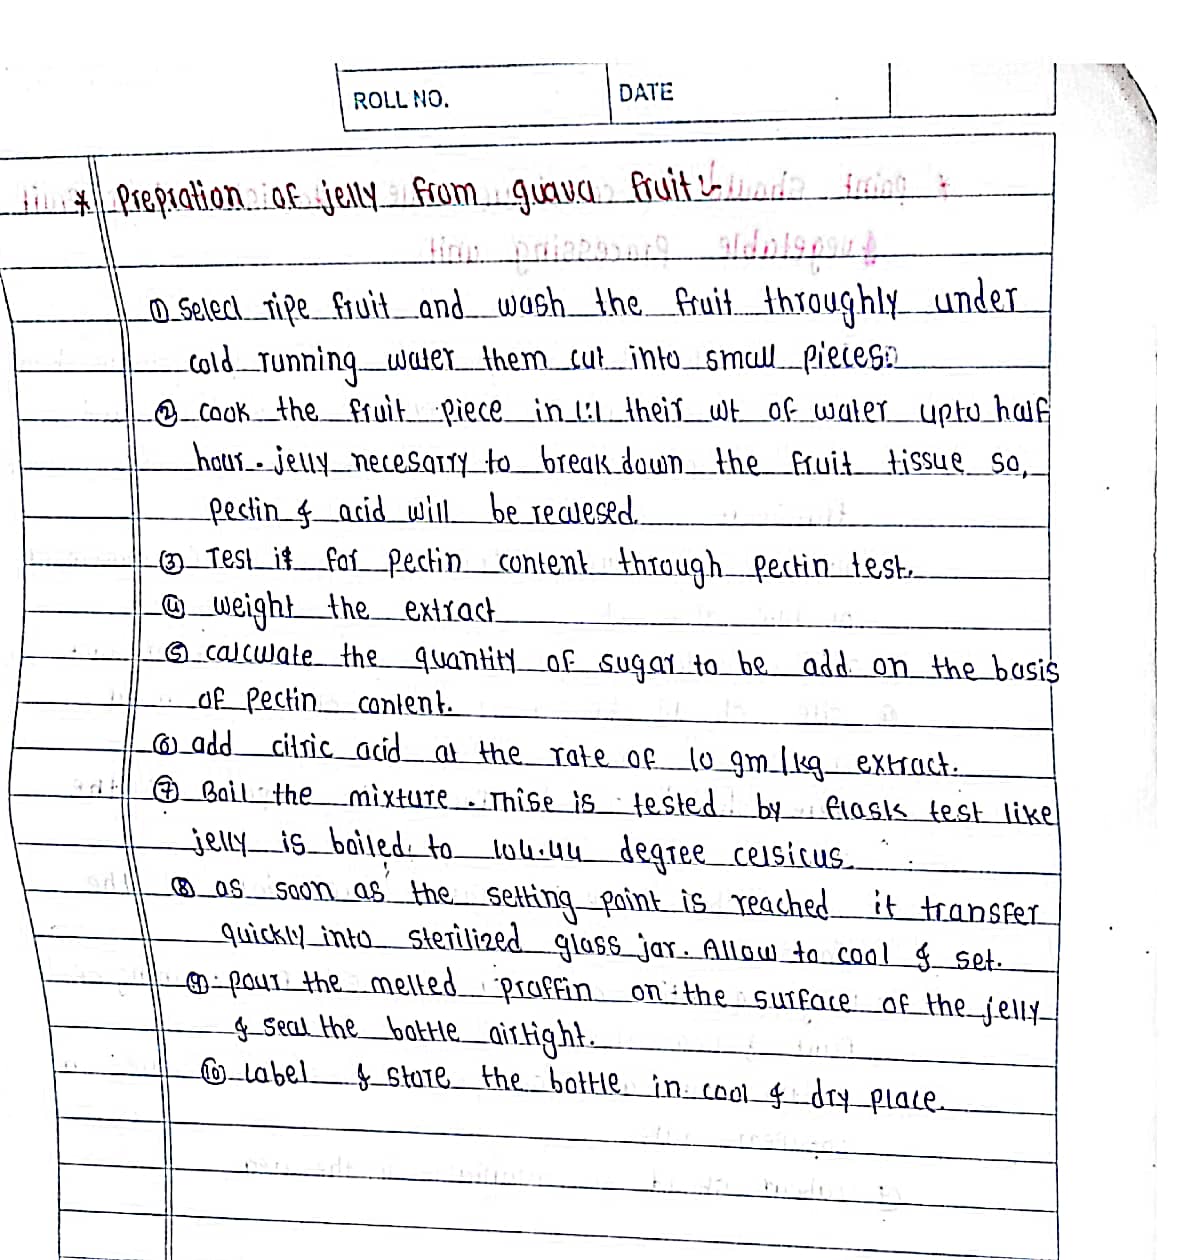 ROLL NO.
DATE
* Prepration of jelly from guava fruit :-
① Select ripe fruit and wash the fruit throughly under
cold running water them cut into small pieces.
② cook the fruit piece in 1:1 their wt of water upto half
hour. jelly necesarry to break down the fruit tissue so,
pectin & acid will be recuesed.
③ Test it for pectin content through pectin test.
④ weight the extract
⑤ calculate the quantity of sugar to be add on the basis
of pectin content.
⑥ add citric acid at the rate of 10 gm/kg extract.
⑦ Boil the mixture. Thise is tested by flask test like
jelly is boiled to 104.44 degree celsicus.
⑧ as soon as the setting point is reached it transfer
quickly into sterilized glass jar. Allow to cool & set.
⑨ pour the melted praffin on the surface of the jelly
& seal the bottle airtight.
⑩ Label & store the bottle in cool & dry place.